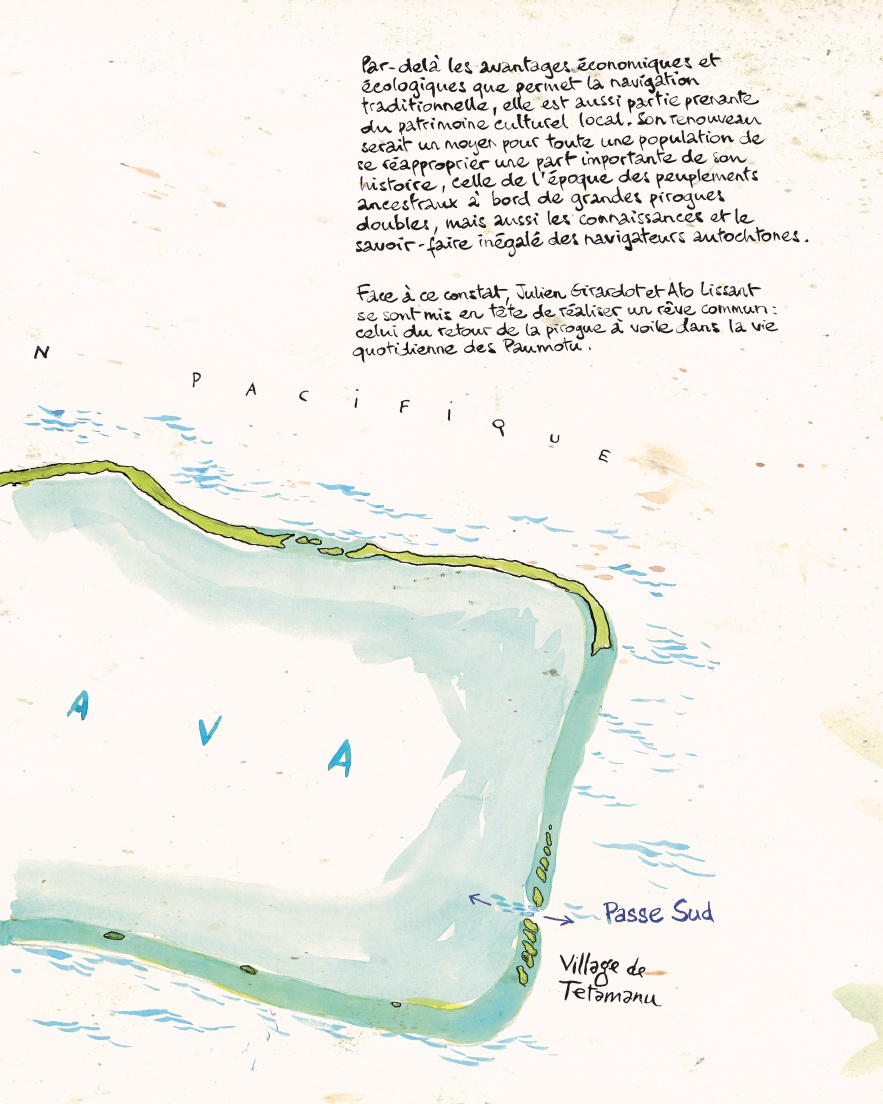 Par-delà les avantages économiques et
écologiques que permet la navigation
traditionnelle, elle est aussi partie prenante
du patrimoine culturel local. Son renouveau
serait un moyen pour toute une population de
se réapproprier une part importante de son
histoire, celle de l'époque des peuplements
ancestraux à bord de grandes pirogues
doubles, mais aussi les connaissances et le
savoir-faire inégalé des navigateurs autochtones.
Face à ce constat, Julien Girardot et Ato Lissant
se sont mis en tête de réaliser un rêve commun :
celui du retour de la pirogue à voile dans la vie
quotidienne des Paumotu.
N PACiFiQUE
AVA
Passe Sud
Village de
Tetamanu